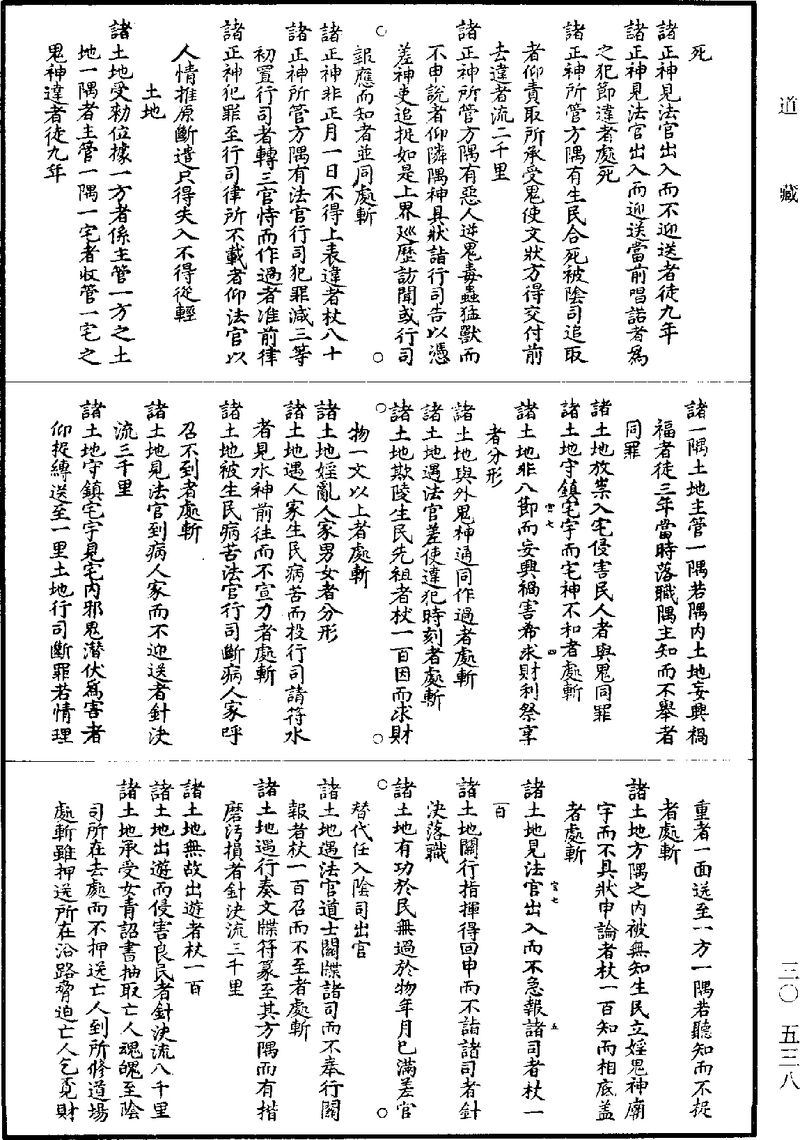 道藏
三〇　五三八
死
諸正神見法官出入而不迎送者徒九年
諸正神見法官出入而迎送當前唱諾者爲
之犯節違者處死
諸正神所管方隅有生民合死被陰司追取
者仰責取所承受鬼使文狀方得交付前
去違者流二千里
諸正神所管方隅有惡人逆鬼毒蟲猛獸而
不申說者仰隣隅神具狀詣行司告以憑
差神吏追捉如是上界廵歷訪聞或行司
報應而知者並同處斬
諸正神非正月一日不得上表違者杖八十
諸正神所管方隅有法官行司犯罪減三等
初置行司者轉三官恃而作過者准前律
諸正神犯罪至行司律所不載者仰法官以
人情推原斷遣只得失入不得從輕
土地
諸土地受勑位據一方者係主管一方之土
地一隅者主管一隅一宅者收管一宅之
鬼神違者徒九年
諸一隅土地主管一隅若隅内土地妄興禍
福者徒三年當時落職隅主知而不舉者
同罪
諸土地放祟入宅侵害民人者與鬼同罪
諸土地守鎮宅宇而宅神不和者處斬
宫七　四
諸土地非八節而妄興禍害希求財利祭享
者分形
諸土地與外鬼神通同作過者處斬
諸土地遇法官差使違犯時刻者處斬
諸土地欺陵生民先祖者杖一百因而求財
物一文以上者處斬
諸土地婬亂人家男女者分形
諸土地遇人家生民病苦而投行司請符水
者見水神前往而不宣力者處斬
諸土地被生民病苦法官行司斷病人家呼
召不到者處斬
諸土地見法官到病人家而不迎送者針決
流三千里
諸土地守鎮宅宇見宅内邪鬼潜伏爲害者
仰捉縛送至一里土地行司斷罪若情理
重者一面送至一方一隅若聽知而不捉
者處斬
諸土地方隅之内被無知生民立婬鬼神廟
宇而不具狀申論者杖一百知而相底盖
者處斬
宫七　五
諸土地見法官出入而不急報諸司者杖一
百
諸土地關行指揮得回申而不詣諸司者針
決落職
諸土地有功於民無過於物年月已滿差官
替代任入陰司出官
諸土地遇法官道士關牒諸司而不奉行關
報者杖一百召而不至者處斬
諸土地遇行奏文牒符篆至其方隅而有揩
磨污損者針決流三千里
諸土地無故出遊者杖一百
諸土地出遊而侵害良民者針決流八千里
諸土地承受女青詔書抽取亡人魂魄至陰
司所在去處而不押送亡人到所修道場
處斬雖押送所在沿路脅迫亡人乞覔財